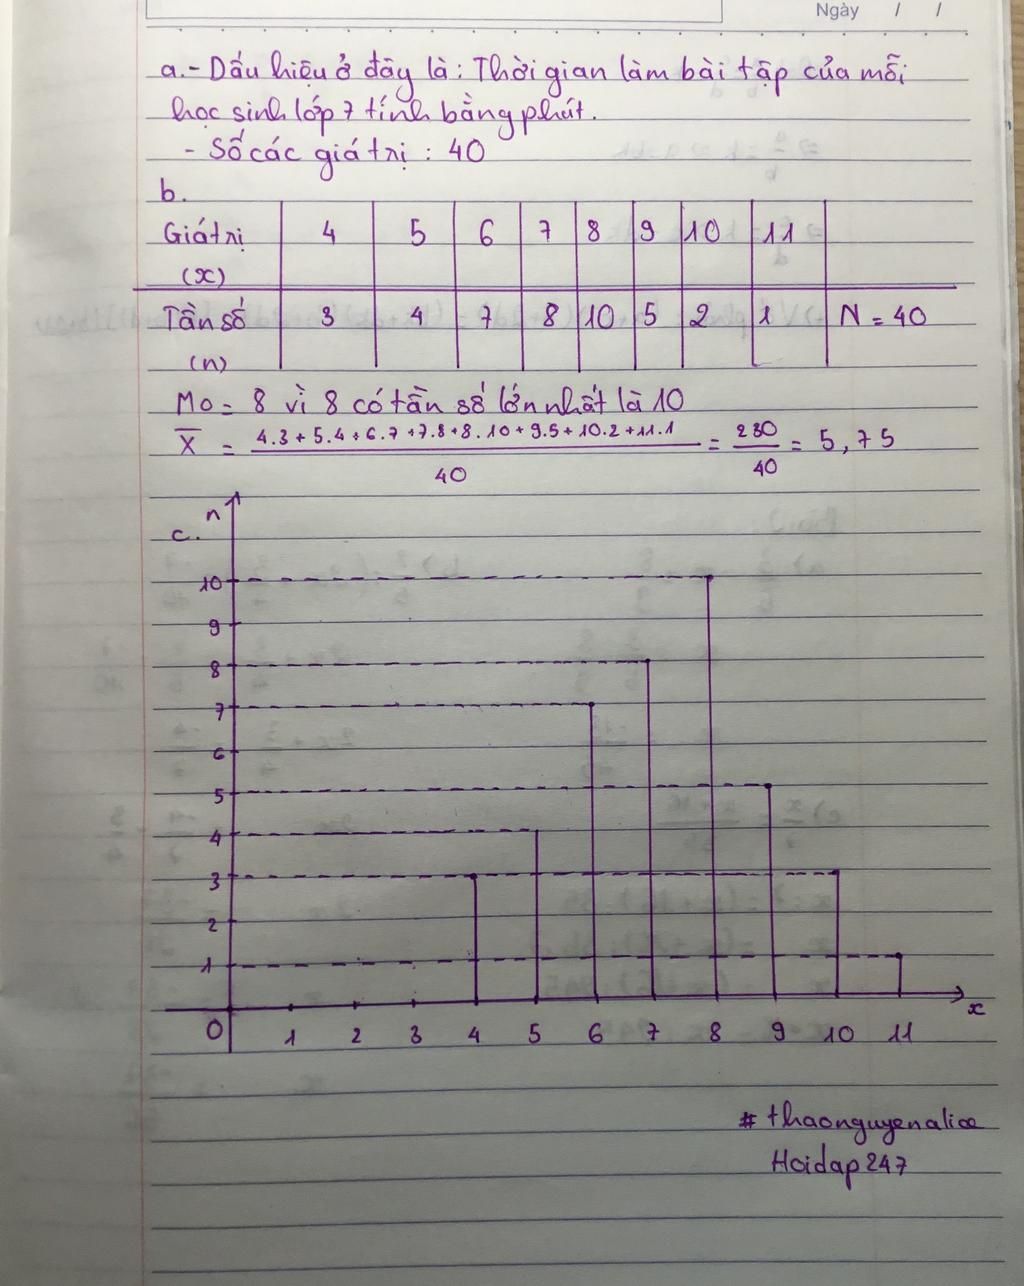 Ngày / /
a.- Dấu hiệu ở đây là : Thời gian làm bài tập của mỗi
học sinh lớp 7 tính bằng phút.
- Số các giá trị : 40
b.
Giá trị (x) 4 5 6 7 8 9 10 11
Tần số (n) 3 4 7 8 10 5 2 1 N = 40
Mo = 8 vì 8 có tần số lớn nhất là 10
X̅ = 4.3 + 5.4 + 6.7 + 7.8 + 8.10 + 9.5 + 10.2 + 11.1 / 40 = 230 / 40 = 5,75
c.
n
10
9
8
7
6
5
4
3
2
1
0 1 2 3 4 5 6 7 8 9 10 11 x
# thaonguyenalice
Hoidap247